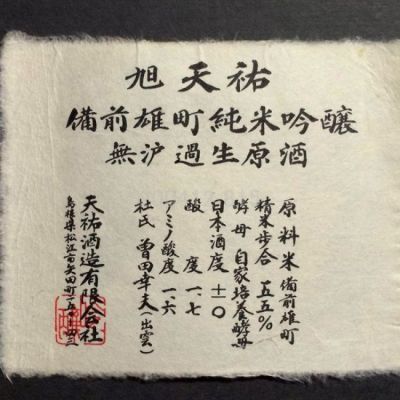 旭天祐
備前雄町純米吟醸
無沪過生原酒
原料米 備前雄町
精米歩合 五五%
酵母 自家培養酵母
日本酒度 ±〇
酸度 一、七
アミノ酸度 一、六
杜氏 曽田幸夫(出雲)
天祐酒造有限会社
島根県松江市矢田町